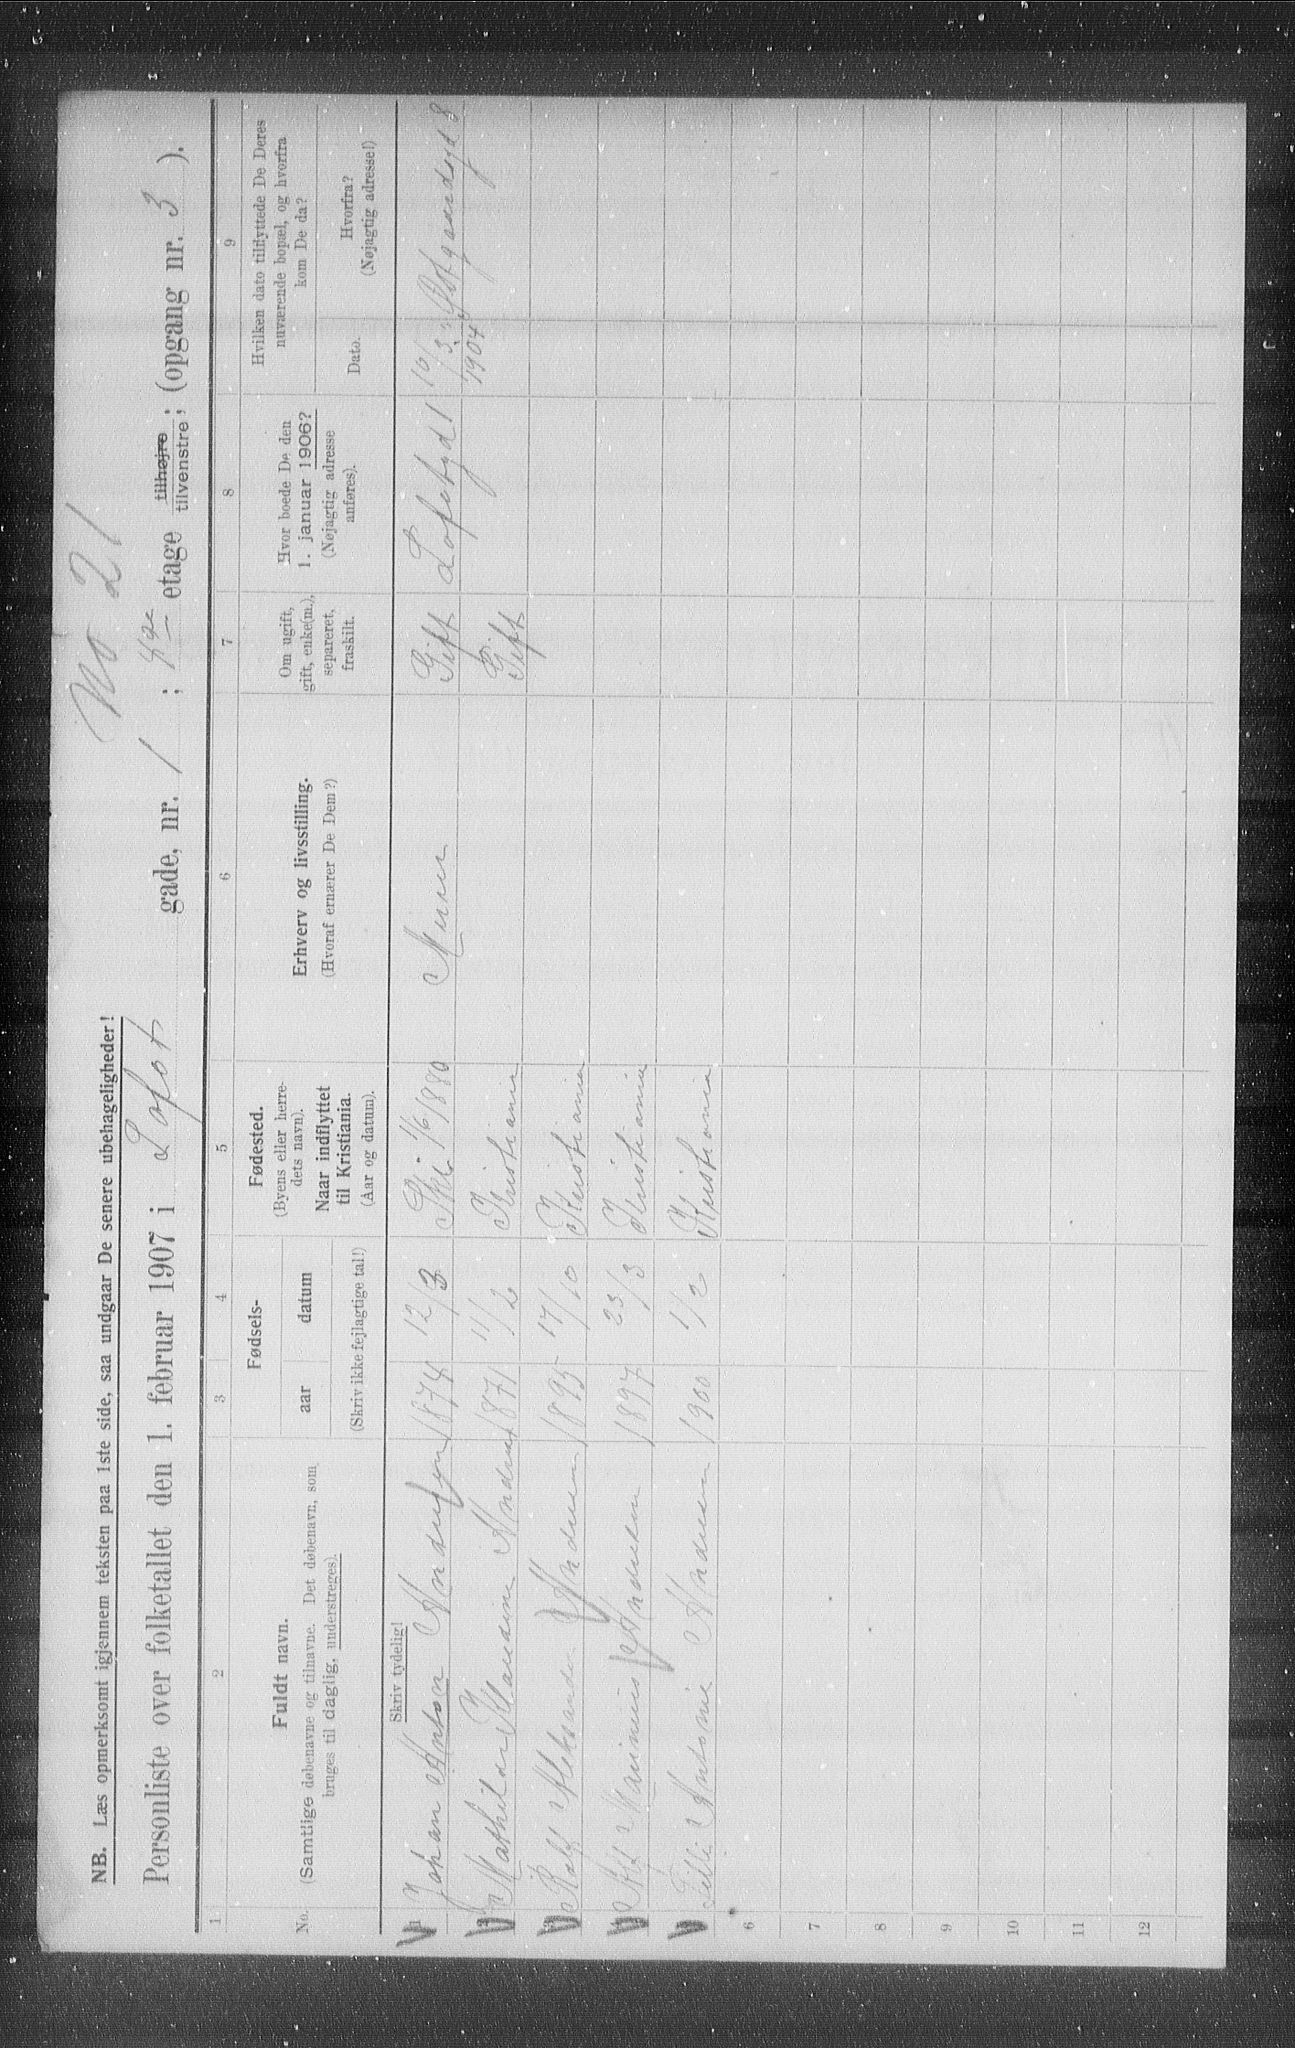 No 21
NB. Læs opmerksomt igjennem teksten paa 1ste side, saa undgaar De senere ubehageligheder!
Personliste over folketallet den 1. februar 1907 i Lofot gade, nr. 1 ; 4de etage tilhøjre tilvenstre; (opgang nr. 3 ).
1 2 3 4 5 6 7 8 9
No.
Fuldt navn.
(Samtlige døbenavne og tilnavne. Det døbenavn, som
bruges til daglig, understreges).
Fødsels-
aar datum
(Skriv ikke fejlagtige tal!)
Fødested.
(Byens eller herre-
dets navn).
Naar indflyttet
til Kristiania.
(Aar og datum).
Erhverv og livsstilling.
(Hvoraf ernærer De Dem?)
Om ugift,
gift, enke(m.),
separeret,
fraskilt.
Hvor boede De den
1. januar 1906?
(Nøjagtig adresse
anføres).
Hvilken dato tilflyttede De Deres
nuværende bopæl, og hvorfra
kom De da?
Dato.
Hvorfra?
(Nøjagtig adresse!)
Skriv tydelig!
1 Johan Anton Andresen 1874 12/3 Ski 1/6 1880 Murer Gift Lofotgd 1 16/3 1904
2 Mathilde Andresen 1871 11/2 Kristiania Gift
3 Rolf Aleksander Andresen 1895 17/10 Kristiania
4 Alf Marinius Andresen 1897 23/3 Kristiania
5 Lilli Antonie Andresen 1900 1/2 Kristiania
6
7
8
9
10
11
12